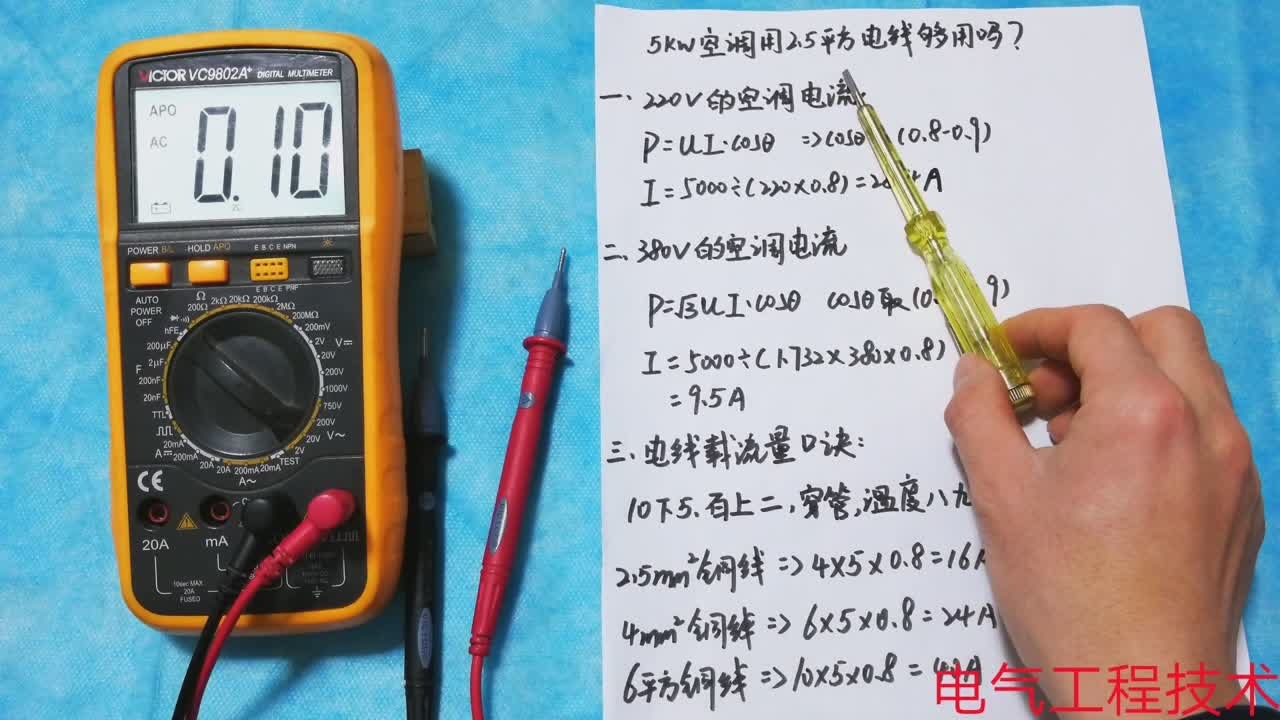 VICTOR VC9802A+ DIGITAL MULTIMETER
APO
AC
0.10
POWER B/L
HOLD APO
E B C E NPN
E B C E PNP
AUTO
POWER
OFF
Ω
200Ω
2kΩ
20kΩ
200kΩ
2MΩ
200MΩ
200mV
2V
20V
V=
200V
1000V
750V
200V
V~
20V
2V
TEST
20mA
200mA
2A
A~
20A
20A
200mA
20mA
A=
TTL
20nF
200nF
F
2μF
200μF
hFE
CE
20A
mA
10sec MAX
20A
FUSED
5KW空调用2.5平方电线够用吗?
一、220V的空调电流
P=UI·cosθ => cosθ (0.8-0.9)
I=5000÷(220×0.8)=28.4A
二、380V的空调电流
P=√3UI·cosθ cosθ取(0.8-0.9)
I=5000÷(1.732×380×0.8)
=9.5A
三、电线载流量口诀:
10下5、百上二,穿管,温度八九
2.5mm²铜线=>4×5×0.8=16A
4mm²铜线=>6×5×0.8=24A
6平方铜线=>10×5×0.8=40A
电气工程技术